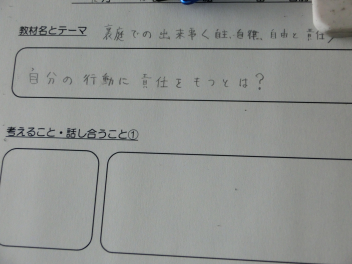 教材名とテーマ 裏庭での出来事く自主、自律、自由と責任>
自分の行動に責任をもつとは?
考えること・話し合うこと①